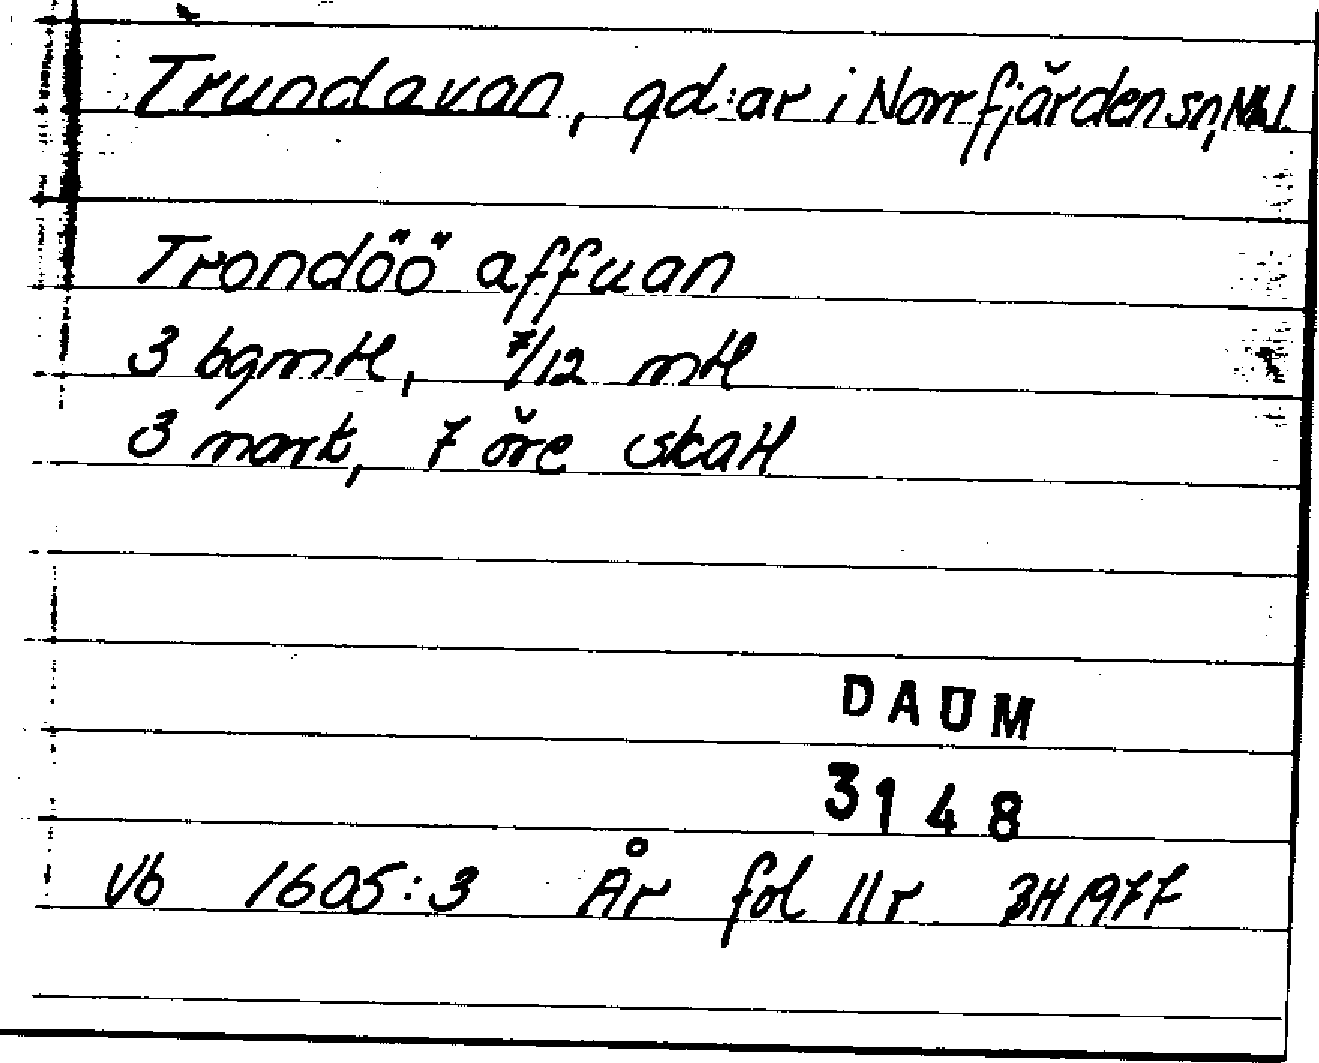 Trundavan, gd:ar i Norrfjärden sn,
Trondöö affuan
3 bgmtl, 7/12 mtl
3 mark, 7 öre skatt
DAUM
3148
Vb 1605:3 År fol 11r BH 1977